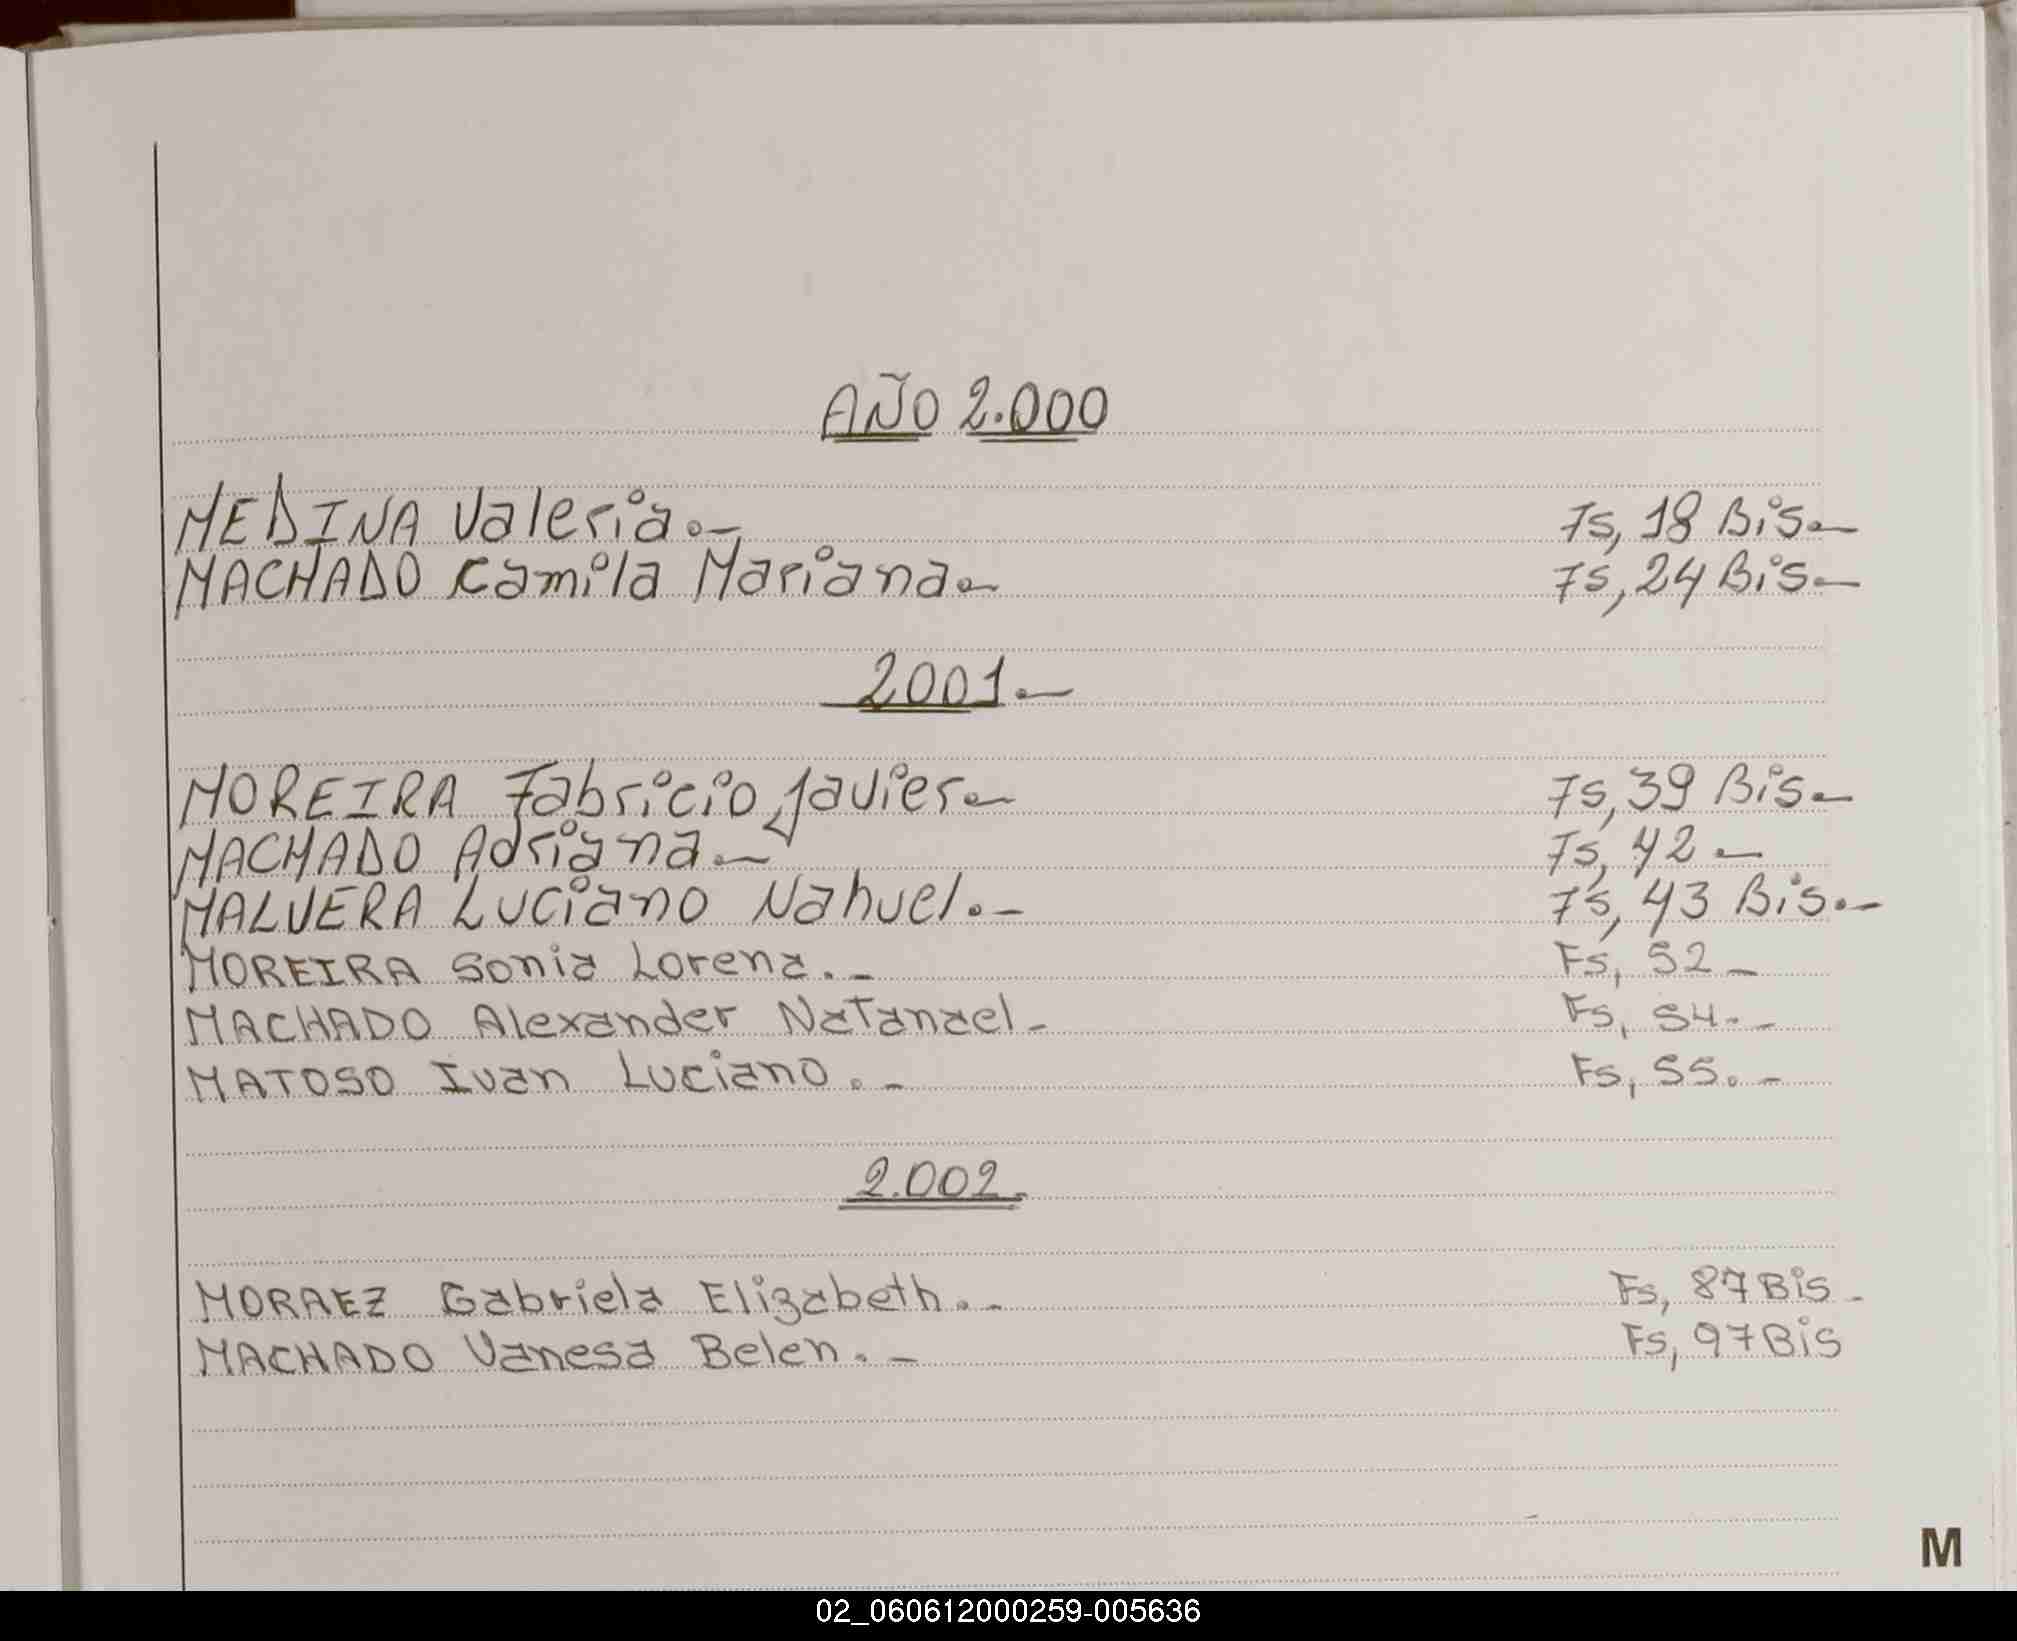 AÑO 2.000
MEDINA Valeria.- Fs, 18 Bis.-
MACHADO Camila Mariana.- Fs, 24 Bis.-
2001.-
MOREIRA Fabricio Javier.- Fs, 39 Bis.-
MACHADO Adriana.- Fs, 42.-
MALVERA Luciano Nahuel.- Fs, 43 Bis.-
MOREIRA Sonia Lorena.- Fs, 52-
MACHADO Alexander Natanael- Fs, 54.-
MATOSO Ivan Luciano.- Fs, 55.-
2.002.
MORAEZ Gabriela Elizabeth.- Fs, 87 Bis-
MACHADO Vanesa Belen.- Fs, 97 Bis
M
02_060612000259-005636